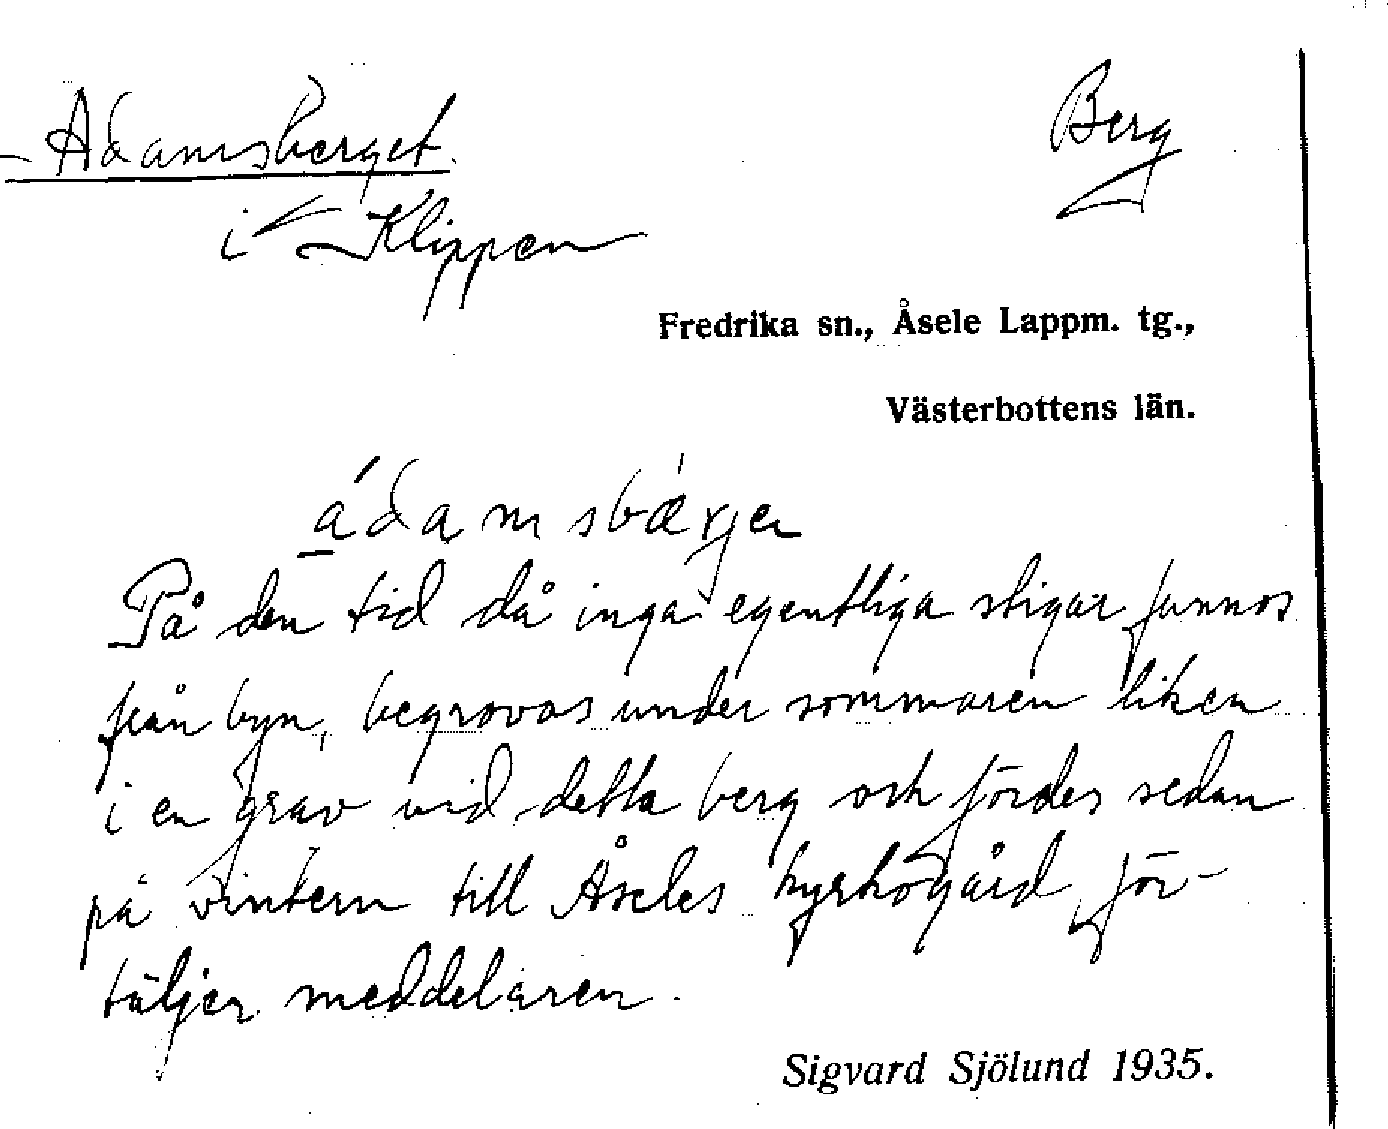 Adamsberget.
Berg
i Klippen
Fredrika sn., Åsele Lappm. tg.,
Västerbottens län.
ádamsbǽrjen
På den tid då inga egentliga stigar funnos
från byn, begrovos under sommaren liken
i en grav vid detta berg och fördes sedan
på vintern till Åseles kyrkogård, för-
täljer meddelaren.
Sigvard Sjölund 1935.